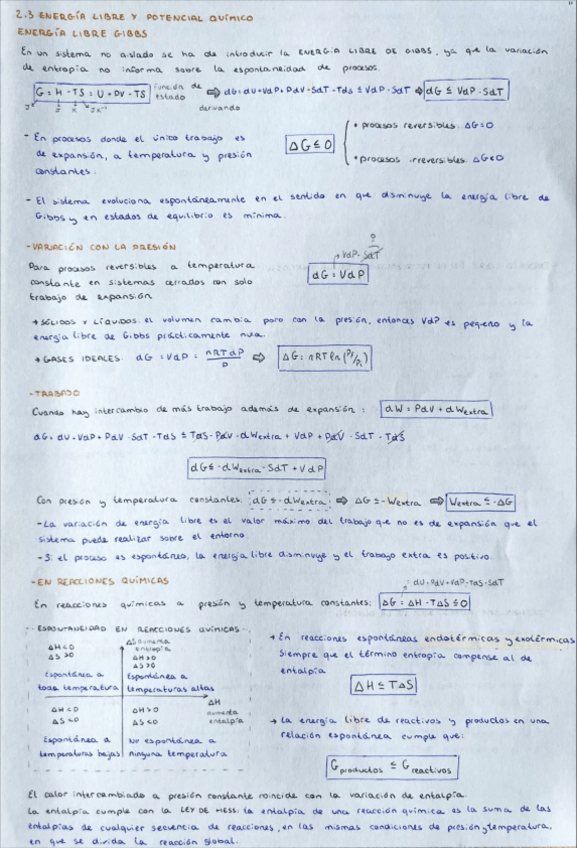 2.3 ENERGÍA LIBRE Y POTENCIAL QUÍMICO
ENERGÍA LIBRE GIBBS
En un sistema no aislado se ha de introducir la ENERGÍA LIBRE DE GIBBS, ya que la variación
de entropía no informa sobre la espontaneidad de procesos.
G = H - TS = U + PV - TS función de estado ⇒ dG = dU + VdP + PdV - SdT - TdS ≤ VdP - SdT ⇒ dG ≤ VdP - SdT
derivando
- En procesos donde el único trabajo es
de expansión, a temperatura y presión
constantes.
ΔG ≤ 0
• procesos reversibles: ΔG=0
• procesos irreversibles: ΔG<0
- El sistema evoluciona espontáneamente en el sentido en que disminuye la energía libre de
Gibbs y en estados de equilibrio es mínima.
- VARIACIÓN CON LA PRESIÓN
Para procesos reversibles a temperatura
constante en sistemas cerrados con solo
trabajo de expansión.
VdP - SdT 0
dG = VdP
→ SÓLIDOS Y LÍQUIDOS: el volumen cambia poco con la presión, entonces VdP es pequeño y la
energía libre de Gibbs prácticamente nula.
→ GASES IDEALES: dG = VdP = nRTdP/P ⇒ ΔG = nRT ln(P₂/P₁)
- TRABAJO
Cuando hay intercambio de más trabajo además de expansión: dW = PdV + dWextra
dG = dU + VdP + PdV - SdT - TdS ≤ TdS - PdV - dWextra + VdP + PdV - SdT - TdS
dG ≤ -dWextra - SdT + VdP
Con presión y temperatura constantes: dG ≤ -dWextra ⇒ ΔG ≤ -Wextra ⇒ Wextra ≤ -ΔG
- La variación de energía libre es el valor máximo del trabajo que no es de expansión que el
sistema puede realizar sobre el entorno.
- Si el proceso es espontáneo, la energía libre disminuye y el trabajo extra es positivo.
- EN REACCIONES QUÍMICAS
= dU + PdV + VdP - TdS - SdT
En reacciones químicas a presión y temperatura constantes: ΔG = ΔH - TΔS ≤ 0
ESPONTANEIDAD EN REACCIONES QUÍMICAS
ΔS aumenta
entropía
ΔH<0
ΔS>0
Espontánea a
toda temperatura
ΔH>0
ΔS>0
Espontánea a
temperaturas altas
ΔH
aumenta
entalpía
ΔH<0
ΔS<0
Espontánea a
temperaturas bajas
ΔH>0
ΔS<0
No espontánea a
ninguna temperatura
→ En reacciones espontáneas endotérmicas y exotérmicas
siempre que el término entropía compense al de
entalpía
ΔH ≤ TΔS
→ La energía libre de reactivos y productos en una
relación espontánea cumple que:
Gproductos ≤ Greactivos
El calor intercambiado a presión constante coincide con la variación de entalpía.
La entalpía cumple con la LEY DE HESS: la entalpía de una reacción química es la suma de las
entalpías de cualquier secuencia de reacciones, en las mismas condiciones de presión y temperatura,
en que se divida la reacción global.